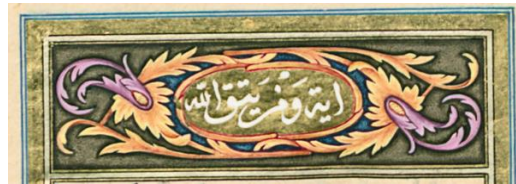 اية ومن يتق الله